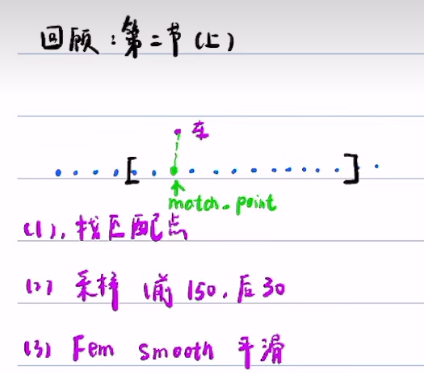 回顾：第二节（上）
车
match-point
(1). 找匹配点
(2) 采样（前150，后30
(3) Fem smooth 平滑